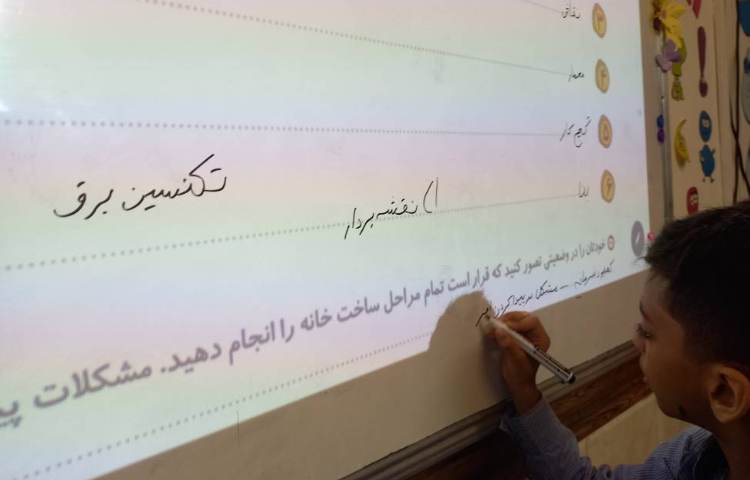 ۳ نقاش
۴ معمار
۵ گچ کار
۶ بنا
۱) نقشه بردار
تکنسین برق
خودتان را در وضعیتی تصور کنید که قرار است تمام مراحل ساخت خانه را انجام دهید. مشکلات
مشکل در پیدا کردن